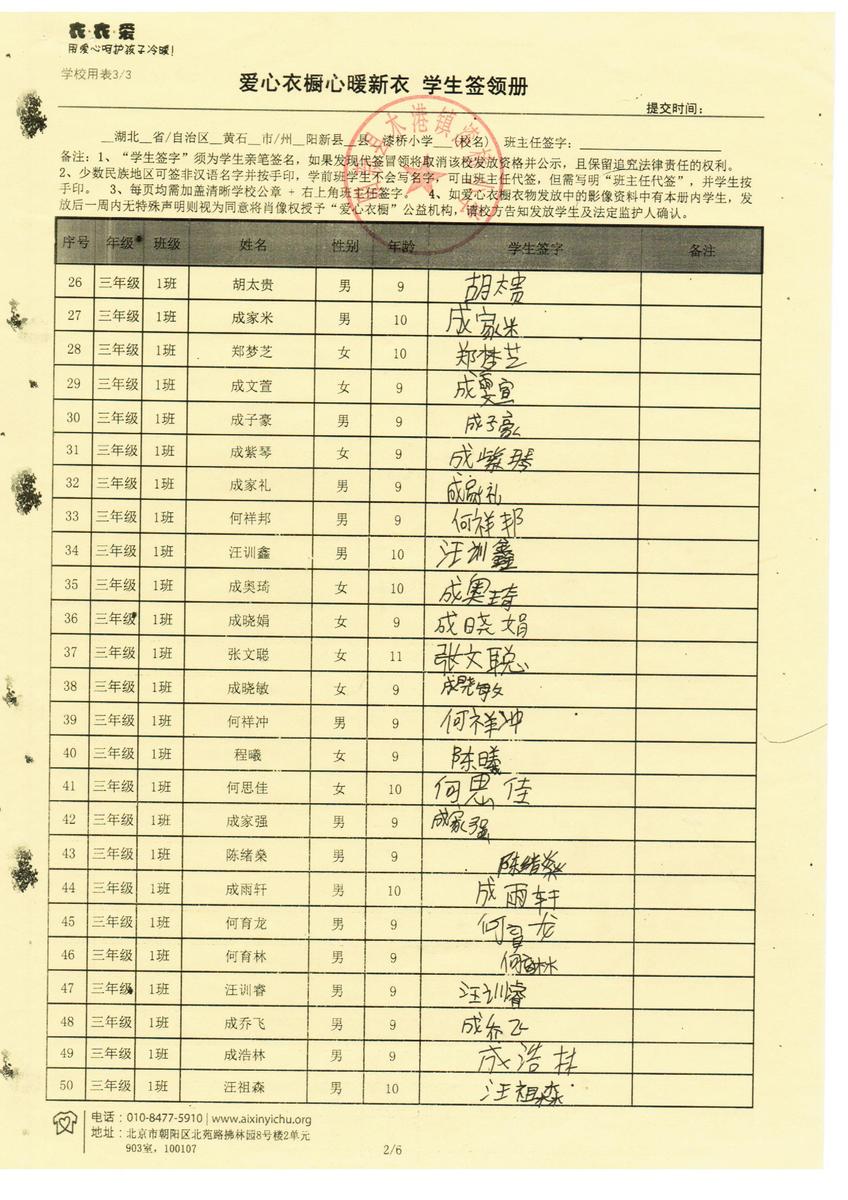 衣·衣·爱
用爱心呵护孩子冷暖!
学校用表3/3
爱心衣橱心暖新衣 学生签领册
提交时间:
__湖北__省/自治区__黄石__市/州__阳新县__县__漆桥小学___(校名) 班主任签字:
备注:1、“学生签字”须为学生亲笔签名,如果发现代签冒领将取消该校发放资格并公示,且保留追究法律责任的权利。
2、少数民族地区可签非汉语名字并按手印,学前班学生不会写名字,可由班主任代签,但需写明“班主任代签”,并学生按
手印。 3、每页均需加盖清晰学校公章 + 右上角班主任签字。 4、如爱心衣橱衣物发放中的影像资料中有本册内学生,发
放后一周内无特殊声明则视为同意将肖像权授予“爱心衣橱”公益机构,请校方告知发放学生及法定监护人确认。
序号 年级 班级 姓名 性别 年龄 学生签字 备注
26 三年级 1班 胡太贵 男 9 胡太贵
27 三年级 1班 成家米 男 10 成家米
28 三年级 1班 郑梦芝 女 10 郑梦芝
29 三年级 1班 成文萱 女 9 成
30 三年级 1班 成子豪 男 9 成子豪
31 三年级 1班 成紫琴 女 9 成紫琴
32 三年级 1班 成家礼 男 9 成家礼
33 三年级 1班 何祥邦 男 9 何祥邦
34 三年级 1班 汪训鑫 男 10 汪训鑫
35 三年级 1班 成奥琦 女 10 成奥琦
36 三年级 1班 成晓娟 女 9 成晓娟
37 三年级 1班 张文聪 女 11 张文聪
38 三年级 1班 成晓敏 女 9 成晓敏
39 三年级 1班 何祥冲 男 9 何祥冲
40 三年级 1班 程曦 女 9 陈曦
41 三年级 1班 何思佳 女 10 何思佳
42 三年级 1班 成家强 男 9 成家强
43 三年级 1班 陈绪燊 男 9 陈绪燊
44 三年级 1班 成雨轩 男 10 成雨轩
45 三年级 1班 何育龙 男 9 何育龙
46 三年级 1班 何育林 男 9 何育林
47 三年级 1班 汪训睿 男 9 汪训睿
48 三年级 1班 成乔飞 男 9 成乔飞
49 三年级 1班 成浩林 男 9 成浩林
50 三年级 1班 汪祖森 男 10 汪祖森
电话:010-8477-5910 | www.aixinyichu.org
地址:北京市朝阳区北苑路拂林园8号楼2单元
903室,100107
2/6